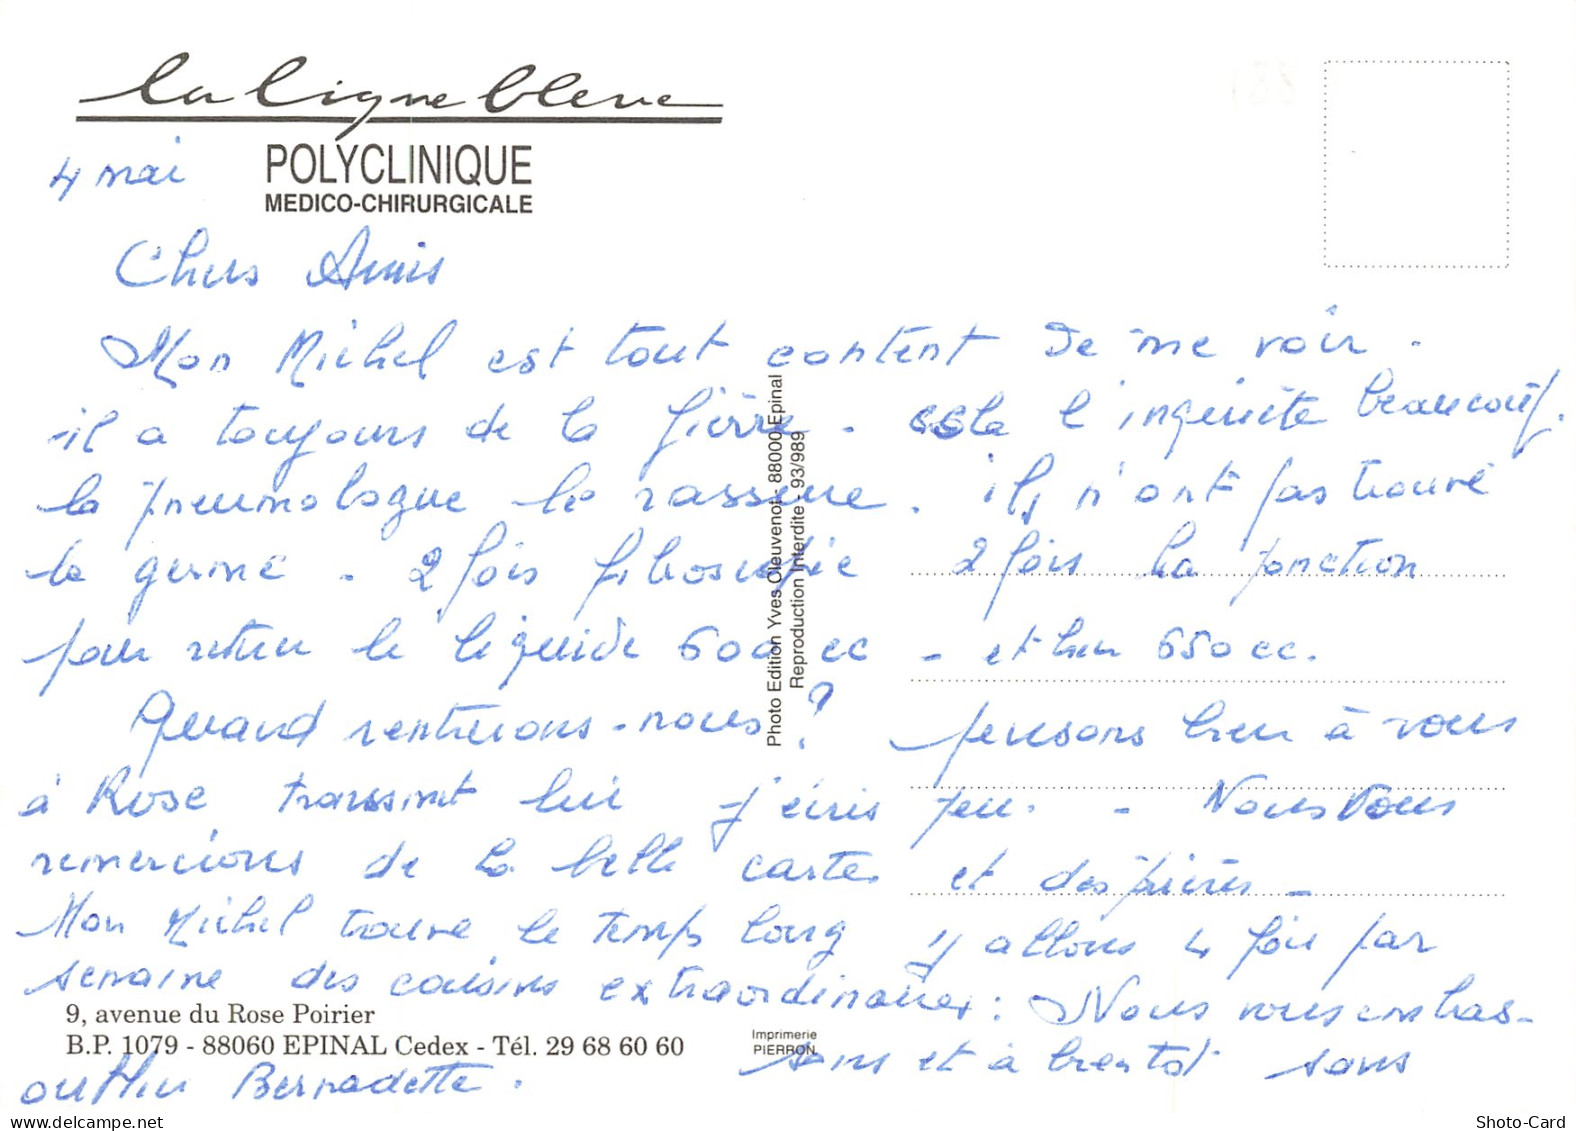 la ligne bleue
POLYCLINIQUE
MEDICO-CHIRURGICALE
4 mai
Chers Amis
Mon Michel est tout content de me voir.
il a toujours de la fièvre. cela l'inquiète beaucoup.
la pneumologue le rassure. ils n'ont pas trouvé
le germe. 2 fois fibroscopie 2 fois la ponction
pour retirer le liquide 600 cc - et hier 650 cc.
Quand rentrerons-nous? pensons bien à vous
à Rose transmet lui j'écris peu. - Nous vous
remercions de la belle carte et des prières -
Mon Michel trouve le temps long y allons 4 fois par
semaine des cousins extraordinaires: Nous vous embras-
sons et à bientôt sans
oublier Bernadette.
9, avenue du Rose Poirier
B.P. 1079 - 88060 EPINAL Cedex - Tél. 29 68 60 60
Photo Edition Yves Oleuvenot - 88000 Epinal
Reproduction Interdite - 93/989
Imprimerie
PIERRON
Shoto-Card
delcampe.net